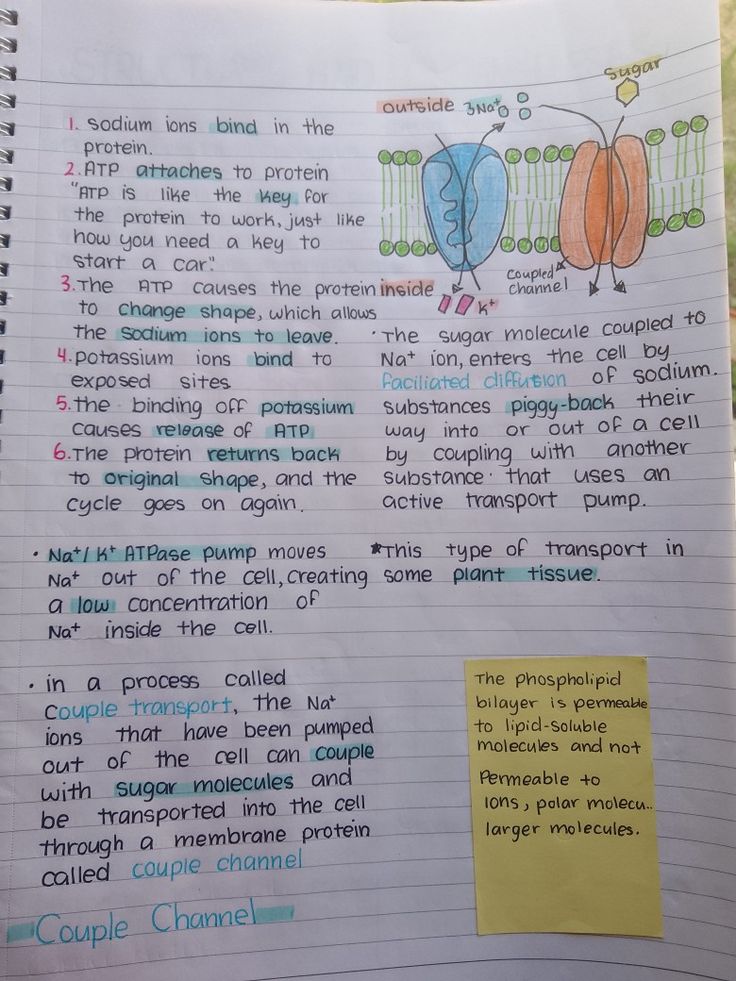 Sugar
outside 3Na⁺
1. Sodium ions bind in the
protein.
2. ATP attaches to protein
"ATP is like the key for
the protein to work, just like
how you need a key to
start a car."
3. The ATP causes the protein
to change shape, which allows
the sodium ions to leave.
4. potassium ions bind to
exposed sites
5. the binding off potassium
causes release of ATP
6. The protein returns back
to original shape, and the
cycle goes on again.
inside
K⁺
Coupled
channel
· The sugar molecule coupled to
Na⁺ ion, enters the cell by
faciliated diffution of sodium.
substances piggy-back their
way into or out of a cell
by coupling with another
substance that uses an
active transport pump.
• Na⁺/K⁺ ATPase pump moves
Na⁺ out of the cell, creating
a low concentration of
Na⁺ inside the cell.
*This type of transport in
some plant tissue.
• in a process called
Couple transport, the Na⁺
ions that have been pumped
out of the cell can couple
with sugar molecules and
be transported into the cell
through a membrane protein
called couple channel
Couple Channel
The phospholipid
bilayer is permeable
to lipid-soluble
molecules and not
Permeable to
Ions, polar molecu..
larger molecules.